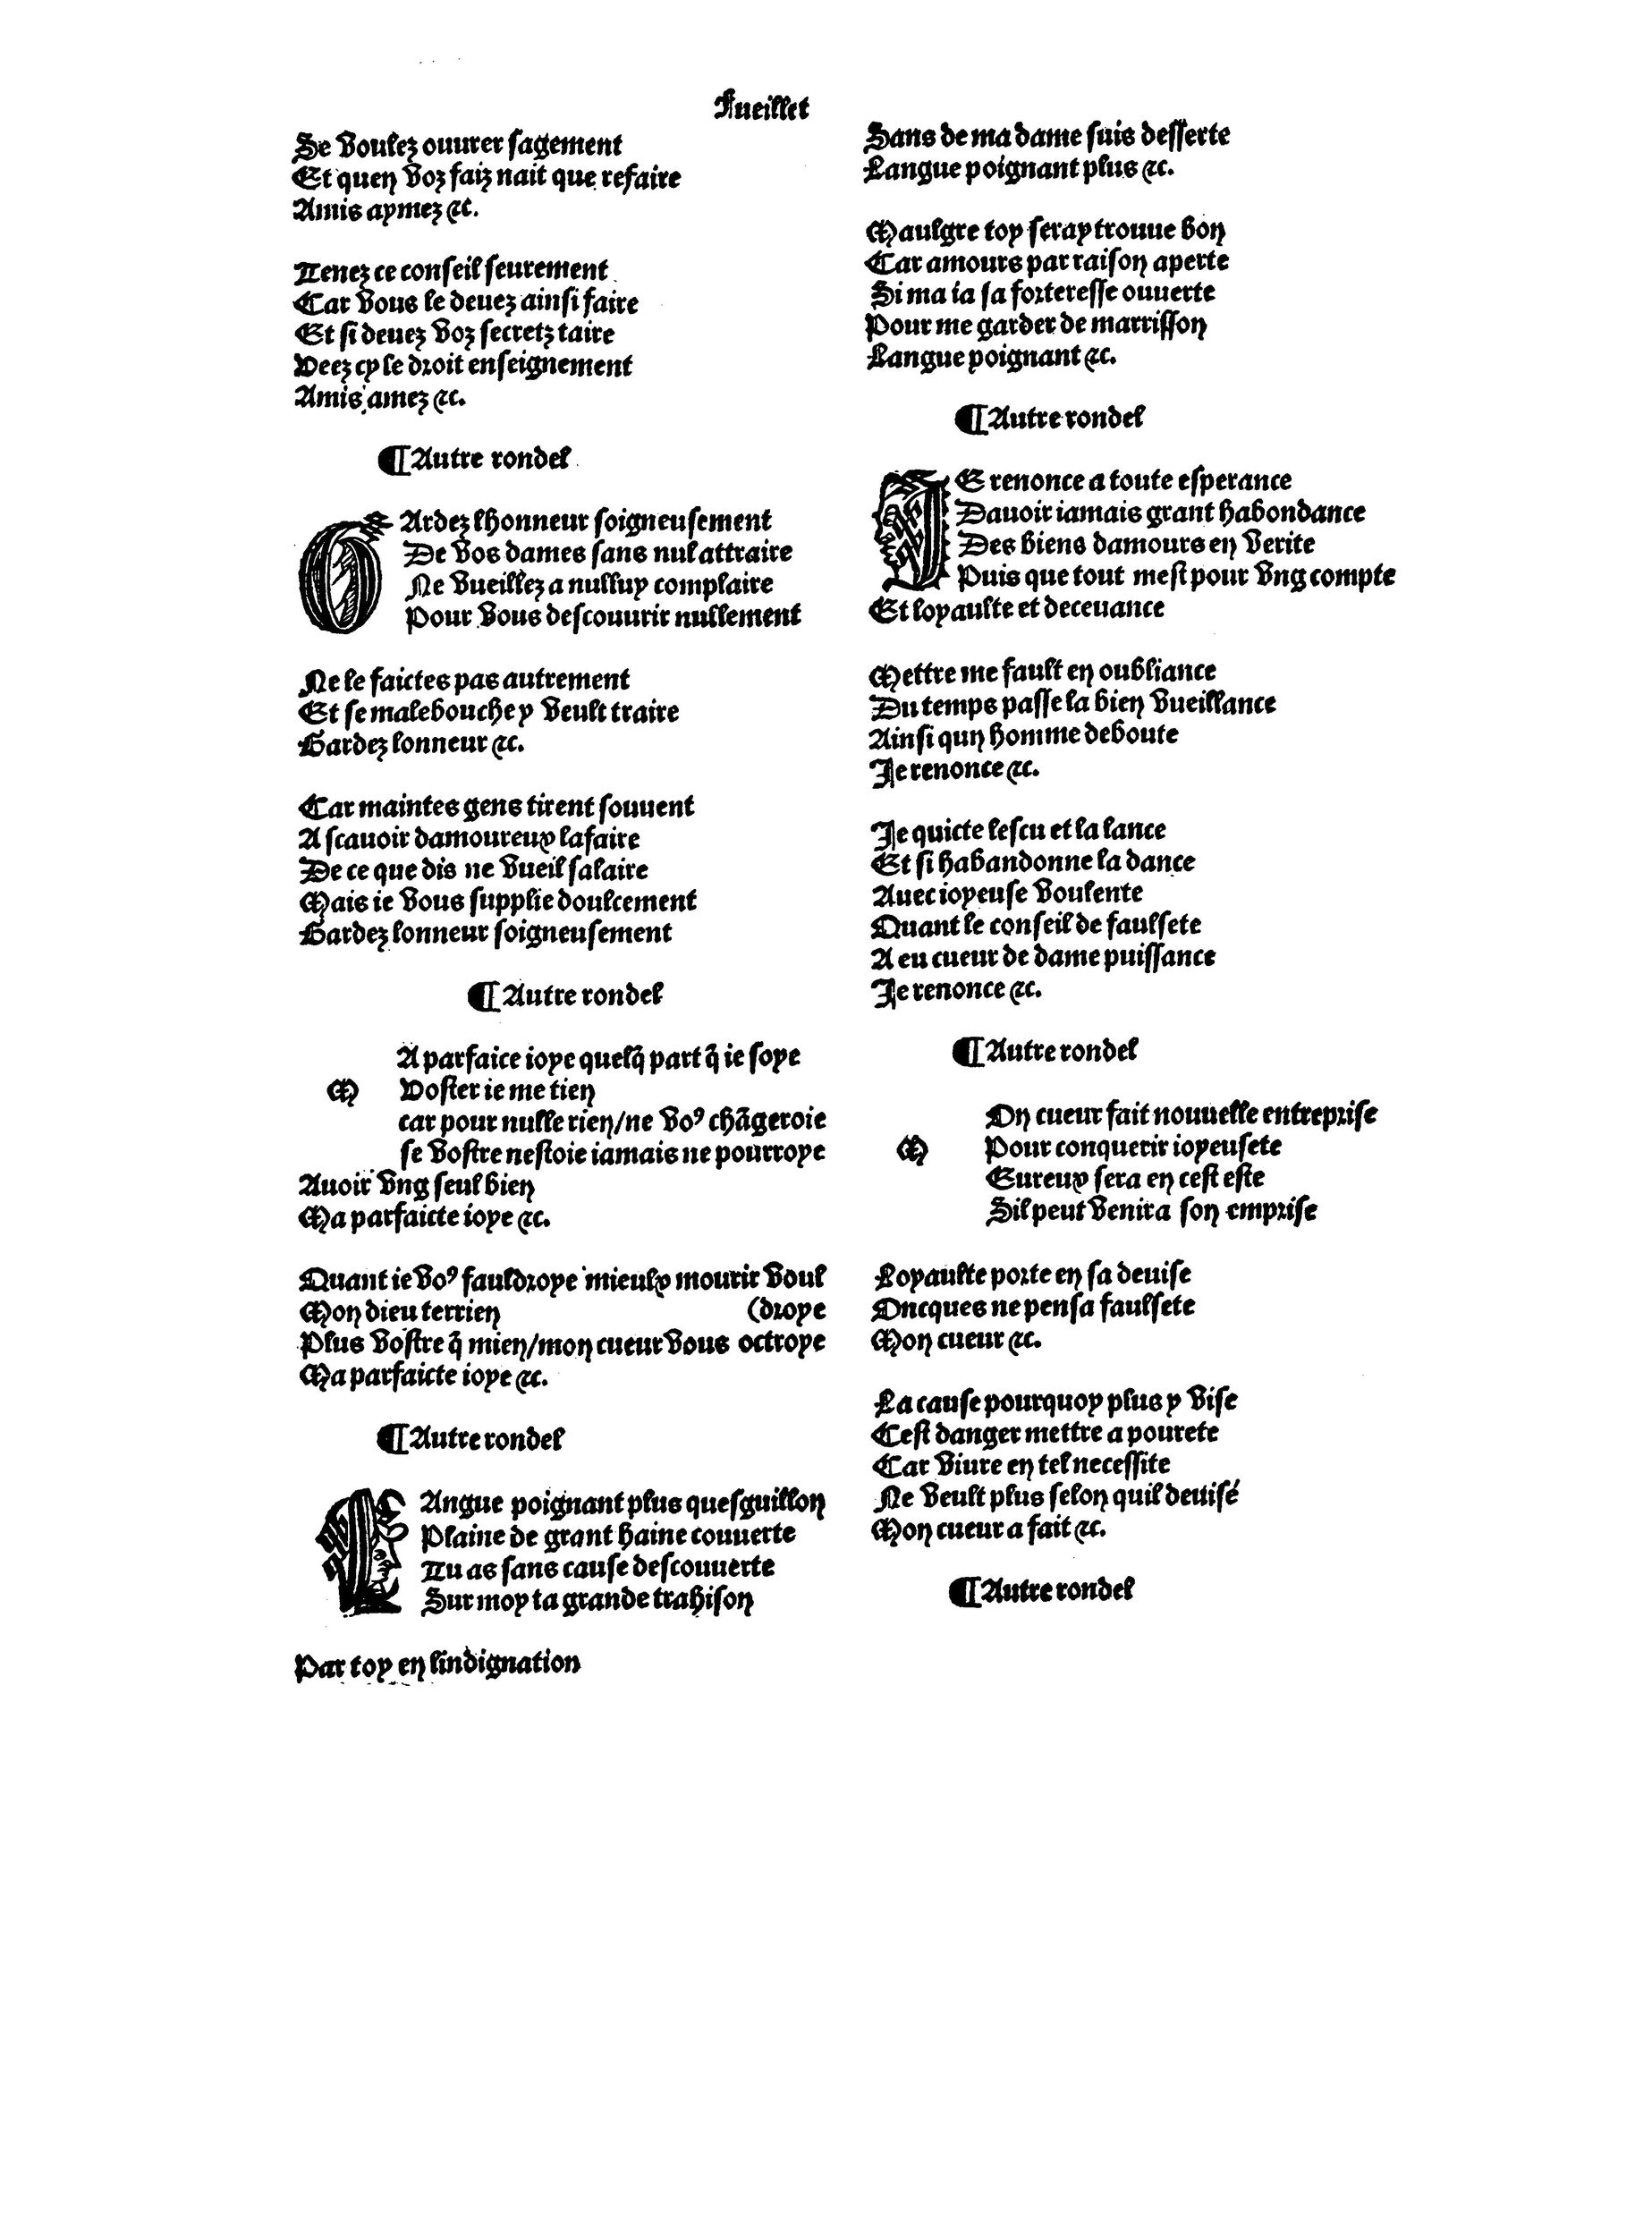 Fueillet
Se voulez ouurer sagement
Et quen voz faiz nait que refaire
Amis aymez &c.
Tenez ce conseil seurement
Car vous le deuez ainsi faire
Et si deuez voz secretz taire
Veez cy le droit enseignement
Amis amez &c.
¶Autre rondel
GArdez lhonneur soigneusement
De vos dames sans nul attraire
Ne vueillez a nulluy complaire
Pour vous descouurir nullement
Ne le faictes pas autrement
Et se malebouche y veult traire
Gardez lonneur &c.
Car maintes gens tirent souuent
A scauoir damoureux lafaire
De ce que dis ne vueil salaire
Mais ie vous supplie doulcement
Gardez lonneur soigneusement
¶Autre rondel
MA parfaice ioye quelq̃ part q̃ ie soye
Voster ie me tien
car pour nulle rien/ne voꝰ chãgeroie
se vostre nestoie iamais ne pourroye
Auoir vng seul bien
Ma parfaicte ioye &c.
Quant ie voꝰ fauldroye mieulx mourir voul
Mon dieu terrien (droye
Plus vostre q̃ mien/mon cueur vous octroye
Ma parfaicte ioye &c.
¶Autre rondel
LAngue poignant plus quesguillon
Plaine de grant haine couuerte
Tu as sans cause descouuerte
Sur moy ta grande trahison
Par toy en lindignation
Sans de ma dame suis desserte
Langue poignant plus &c.
Maulgre toy seray trouue bon
Car amours par raison aperte
Si ma ia sa forteresse ouuerte
Pour me garder de marrisson
Langue poignant &c.
¶Autre rondel
IE renonce a toute esperance
Dauoir iamais grant habondance
Des biens damours en verite
Puis que tout mest pour vng compte
Et loyaulte et deceuance
Mettre me fault en oubliance
Du temps passe la bien vueillance
Ainsi qun homme deboute
Je renonce &c.
Je quicte lescu et la lance
Et si habandonne la dance
Auec ioyeuse voulente
Quant le conseil de faulsete
A eu cueur de dame puissance
Je renonce &c.
¶Autre rondel
MOn cueur fait nouuelle entreprise
Pour conquerir ioyeusete
Eureux sera en cest este
Sil peut venir a son emprise
Loyaulte porte en sa deuise
Oncques ne pensa faulsete
Mon cueur &c.
La cause pourquoy plus y vise
Cest danger mettre a pourete
Car viure en tel necessite
Ne veult plus selon quil deuise
Mon cueur a fait &c.
¶Autre rondel